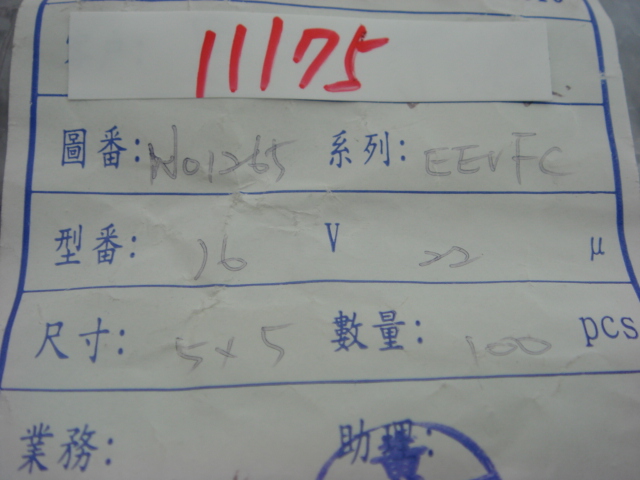 11175
圖番: NO1265 系列: EEVFC
型番: 16 V 22 μ
尺寸: 5×5 數量: 100 pcs
業務: 助理: